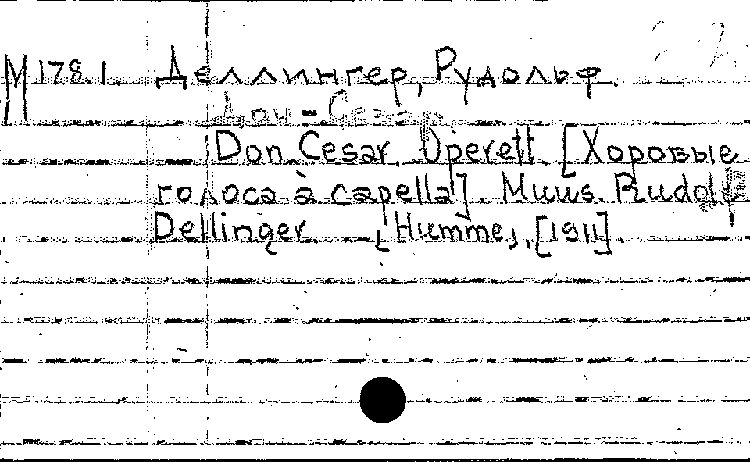 М 178.1. Деллингер, Рудольф.
Дон-Сезар.
Don Cesar. Operett. [Хоровые
голоса à capella]. Muus. Rudolf
Dellinger. [Humme], [1911].